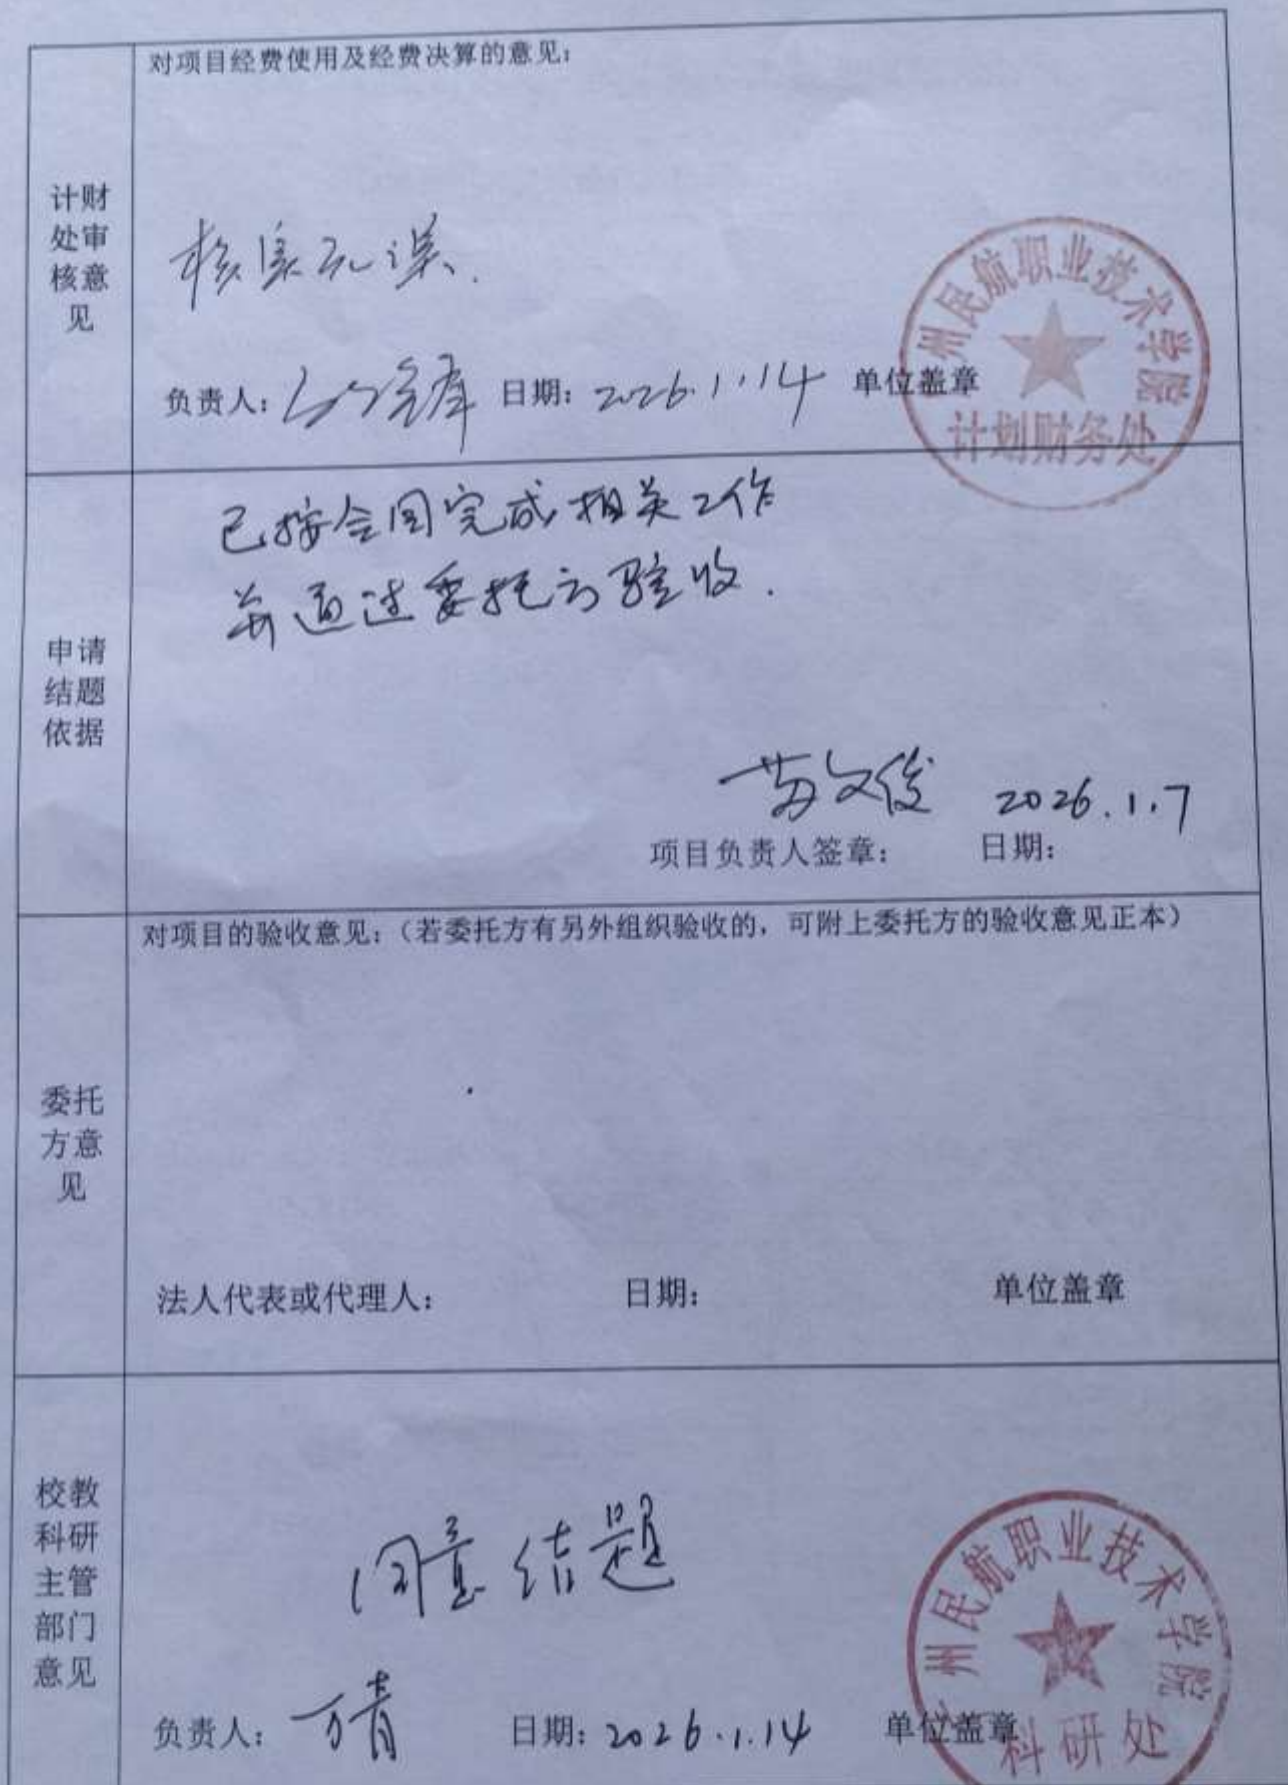 对项目经费使用及经费决算的意见：
计财
处审
核意
见
核实无误.
负责人：
日期：2026.1.14
单位盖章
州民航职业技术学院
计划财务处
已按合同完成相关工作
并通过委托方验收.
申请
结题
依据
苗文俊 2026.1.7
项目负责人签章： 日期：
对项目的验收意见：（若委托方有另外组织验收的，可附上委托方的验收意见正本）
委托
方意
见
法人代表或代理人： 日期： 单位盖章
校教
科研
主管
部门
意见
同意结题
负责人：万青 日期：2026.1.14 单位盖章
广州民航职业技术学院
科研处